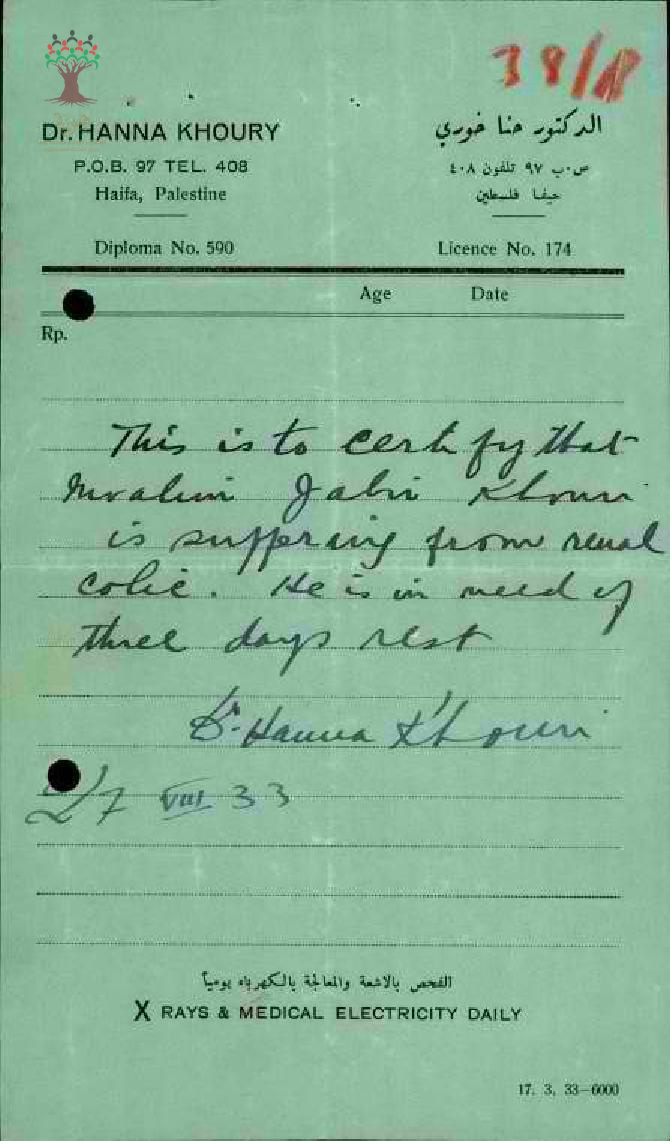 38/8
Dr. HANNA KHOURY
P.O.B. 97 TEL. 408
Haifa, Palestine
Diploma No. 590
الدكتور حنا خوري
ص.ب ٩٧ تلفون ٤٠٨
حيفا فلسطين
Licence No. 174
Age Date
Rp.
This is to certify that
Mualim Jabir Khouri
is suffering from renal
colic. He is in need of
three days rest
Dr. Hanna Khouri
27 VIII 33
الفحص بالاشعة والمعالجة بالكهرباء يومياً
X RAYS & MEDICAL ELECTRICITY DAILY
17. 3. 33—6000